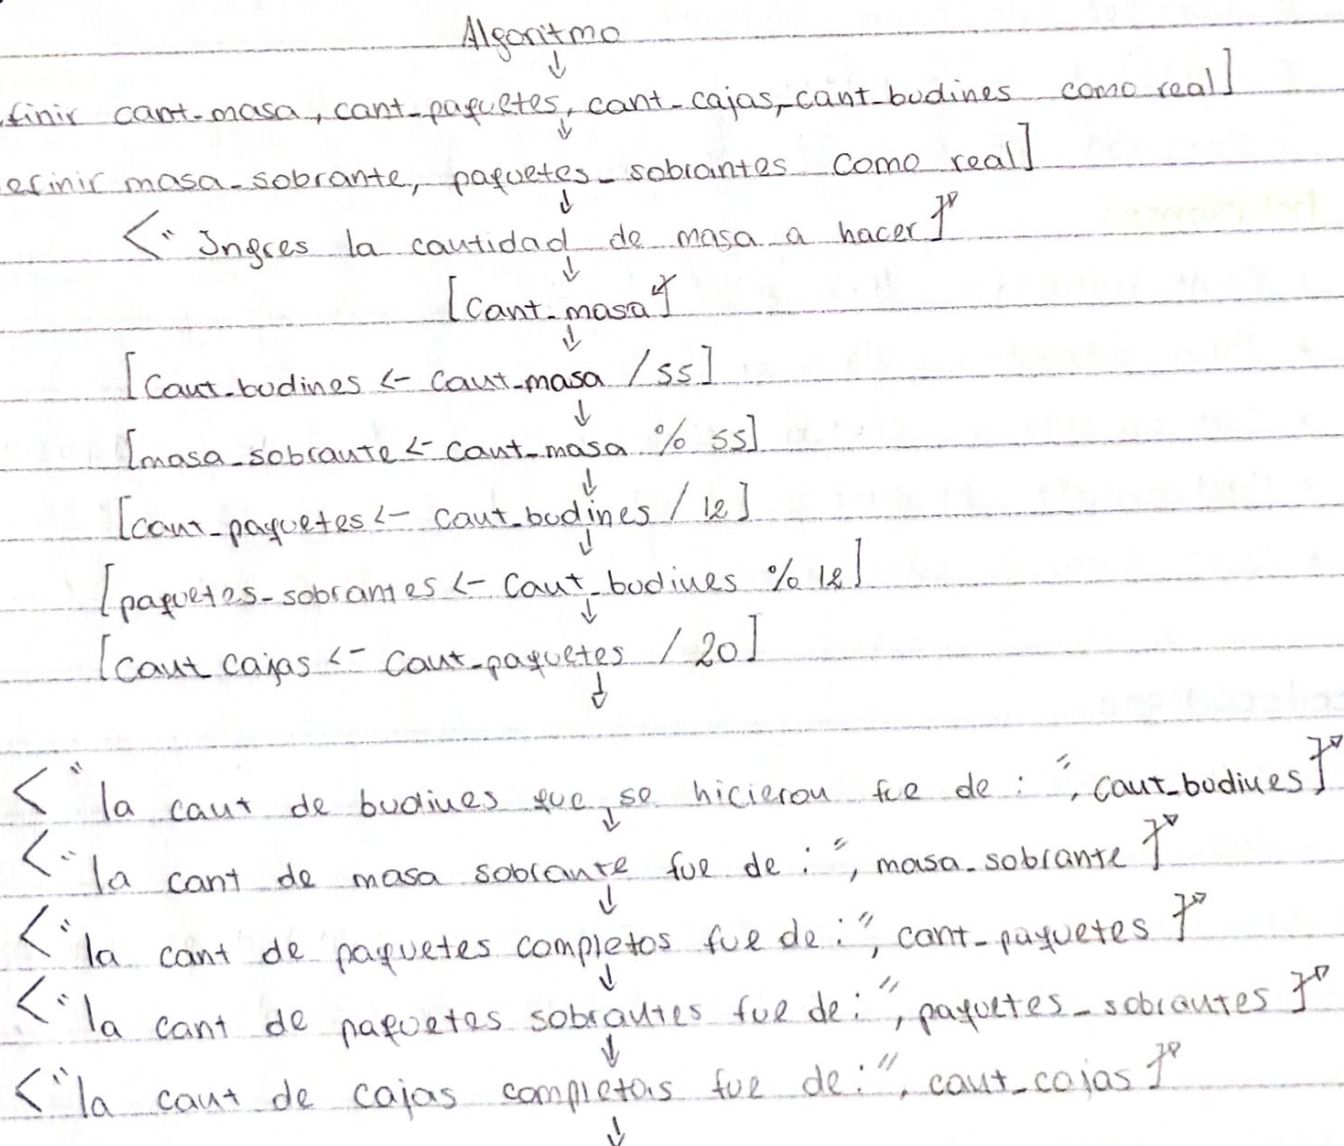 Algoritmo
finir cant_masa, cant_paquetes, cant_cajas, cant_budines como real]
efinir masa_sobrante, paquetes_sobrantes como real]
<" Ingres la cantidad de masa a hacer]
[cant_masa]
[cant_budines <- cant_masa / 55]
[masa_sobrante <- cant_masa % 55]
[cant_paquetes <- cant_budines / 12]
[paquetes_sobrantes <- cant_budines % 12]
[cant cajas <- cant_paquetes / 20]
<" la cant de budines que se hicieron fue de : ", cant_budines]
<" la cant de masa sobrante fue de : ", masa_sobrante]
<" la cant de paquetes completos fue de : ", cant_paquetes]
<" la cant de paquetes sobrantes fue de : ", paquetes_sobrantes]
<" la cant de cajas completas fue de : ", cant_cajas]